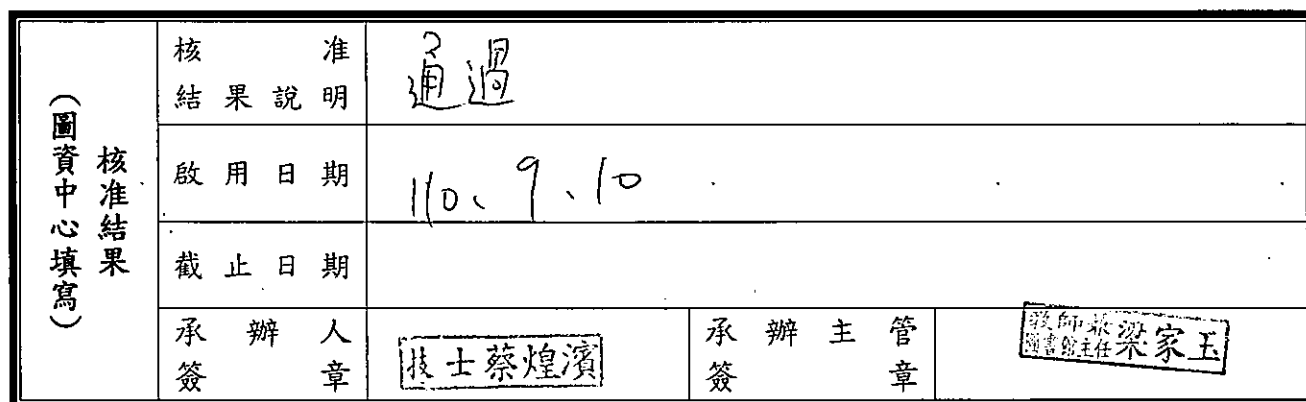 核准結果
(圖資中心填寫)
核准
結果說明
通過
啟用日期
110、9、10
截止日期
承辦人
簽章
技士蔡煌濱
承辦主管
簽章
教師兼
圖書館主任
梁家玉